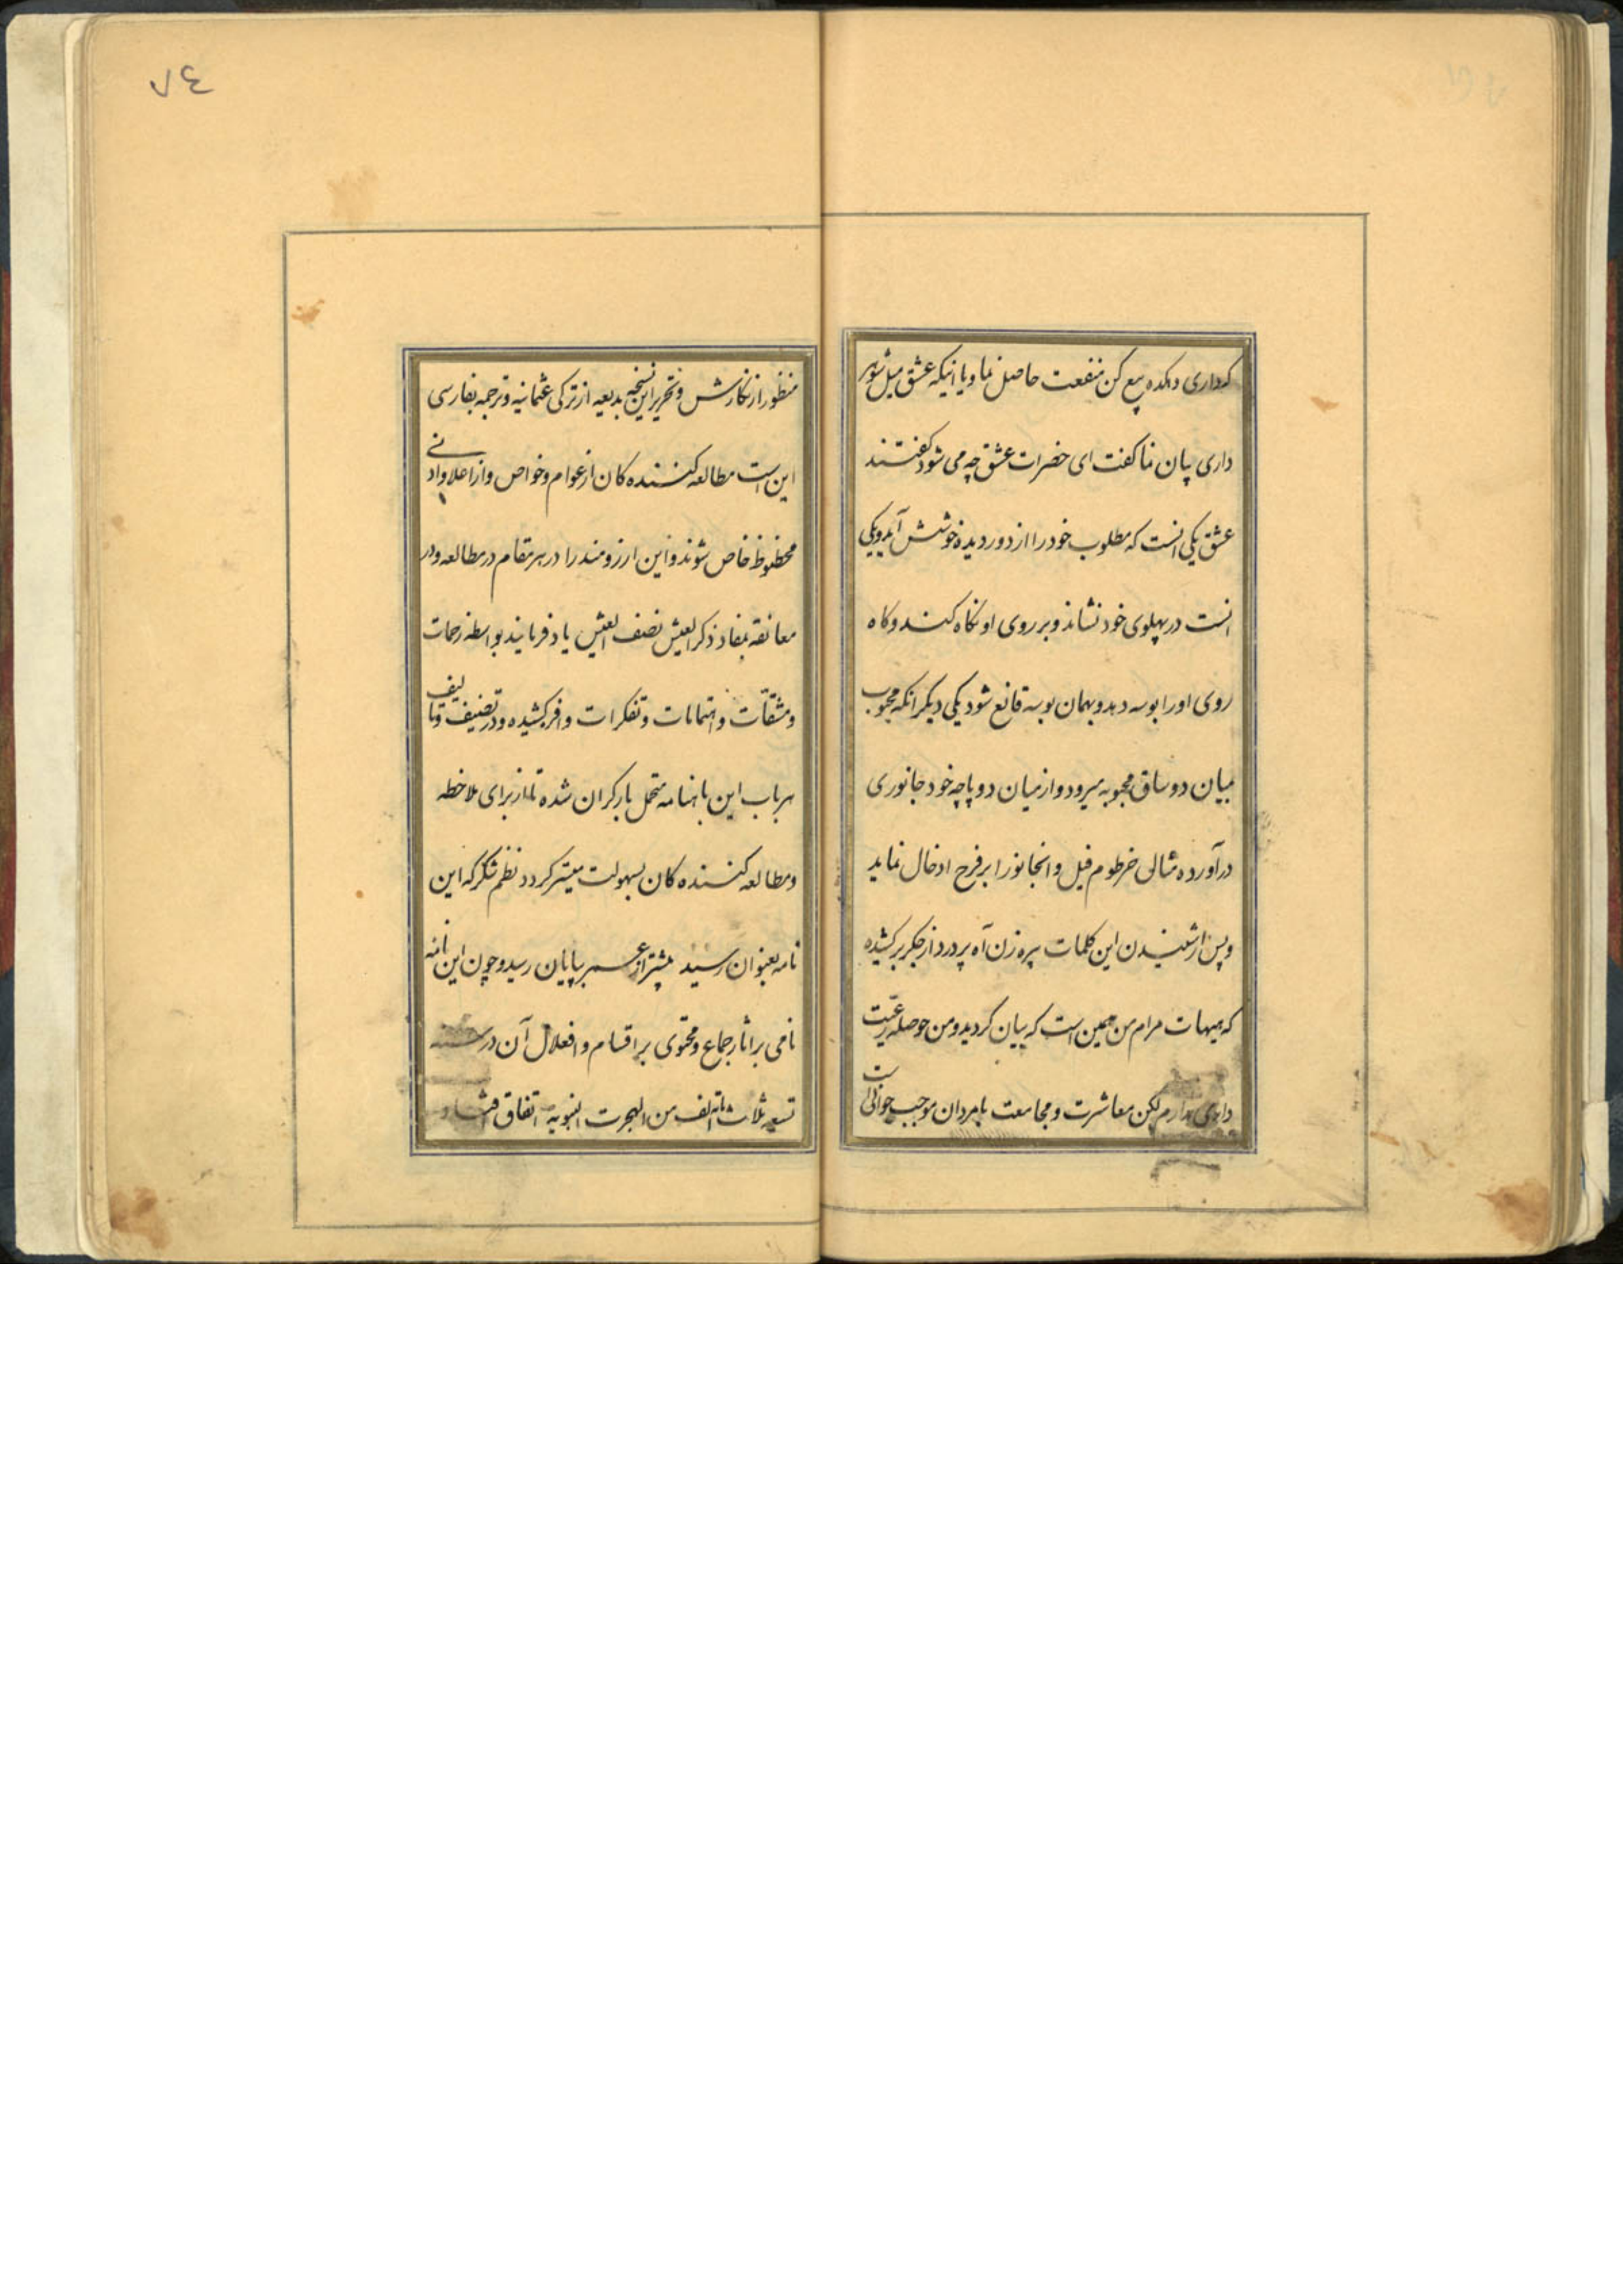 که داری دهکده بیع کن منفعت حاصل نما و یا اینکه عشق میل شوهر
داری بیان نما گفت ای حضرات عشق چه می شود گفتند
عشق یکی آنست که مطلوب خود را از دور دیده خوشش آید و یکی
آنست در پهلوی خود نشاند و بر روی او نگاه کند و گاه
روی او را بوسه دهد و بهمان بوسه قانع شود یکی دیگر آنکه محبوب
میان دو ساق محبوبه میرود و از میان دو پاچه خود جانوری
درآورده مثالی خرطوم فیل و آنجانور را بر فرج ادخال نماید
و پس از شنیدن این کلمات پیره زن آه پر درد از جگر برکشیده
که هیهات مرام من همین است که بیان کردید و من حوصله رعیت
داری ندارم لکن معاشرت و مجامعت با مردان موجب جوانی است
٧٤
منظور از نگارش و تحریر این نسخه بدیعه از ترکی عثمانیه و ترجمه بفارسی
این است مطالعه کننده کان از عوام و خواص و از اعلا و ادنی
محظوظ خاص شوند و این ارزومند را در هر مقام در مطالعه و در
معانقه بمفاد ذکر العیش نصف العیش یاد فرمایند بواسطه زحمات
و مشقّات و اهتمامات و تفکرات وافر کشیده و در تصنیف و تالیف
هر باب این باهنامه متحمل بار گران شده تا از برای ملاحظه
و مطالعه کننده کان بسهولت میسّر گردد نظم شکر که این
نامه بعنوان رسید پیشتر از عمر بپایان رسید و چون این نامه
نامی بر اثار جماع و محتوی بر اقسام و افعال آن در سنه
تسعه ثلاث مائة الف من الهجرت النبویه اتفاق افتاد